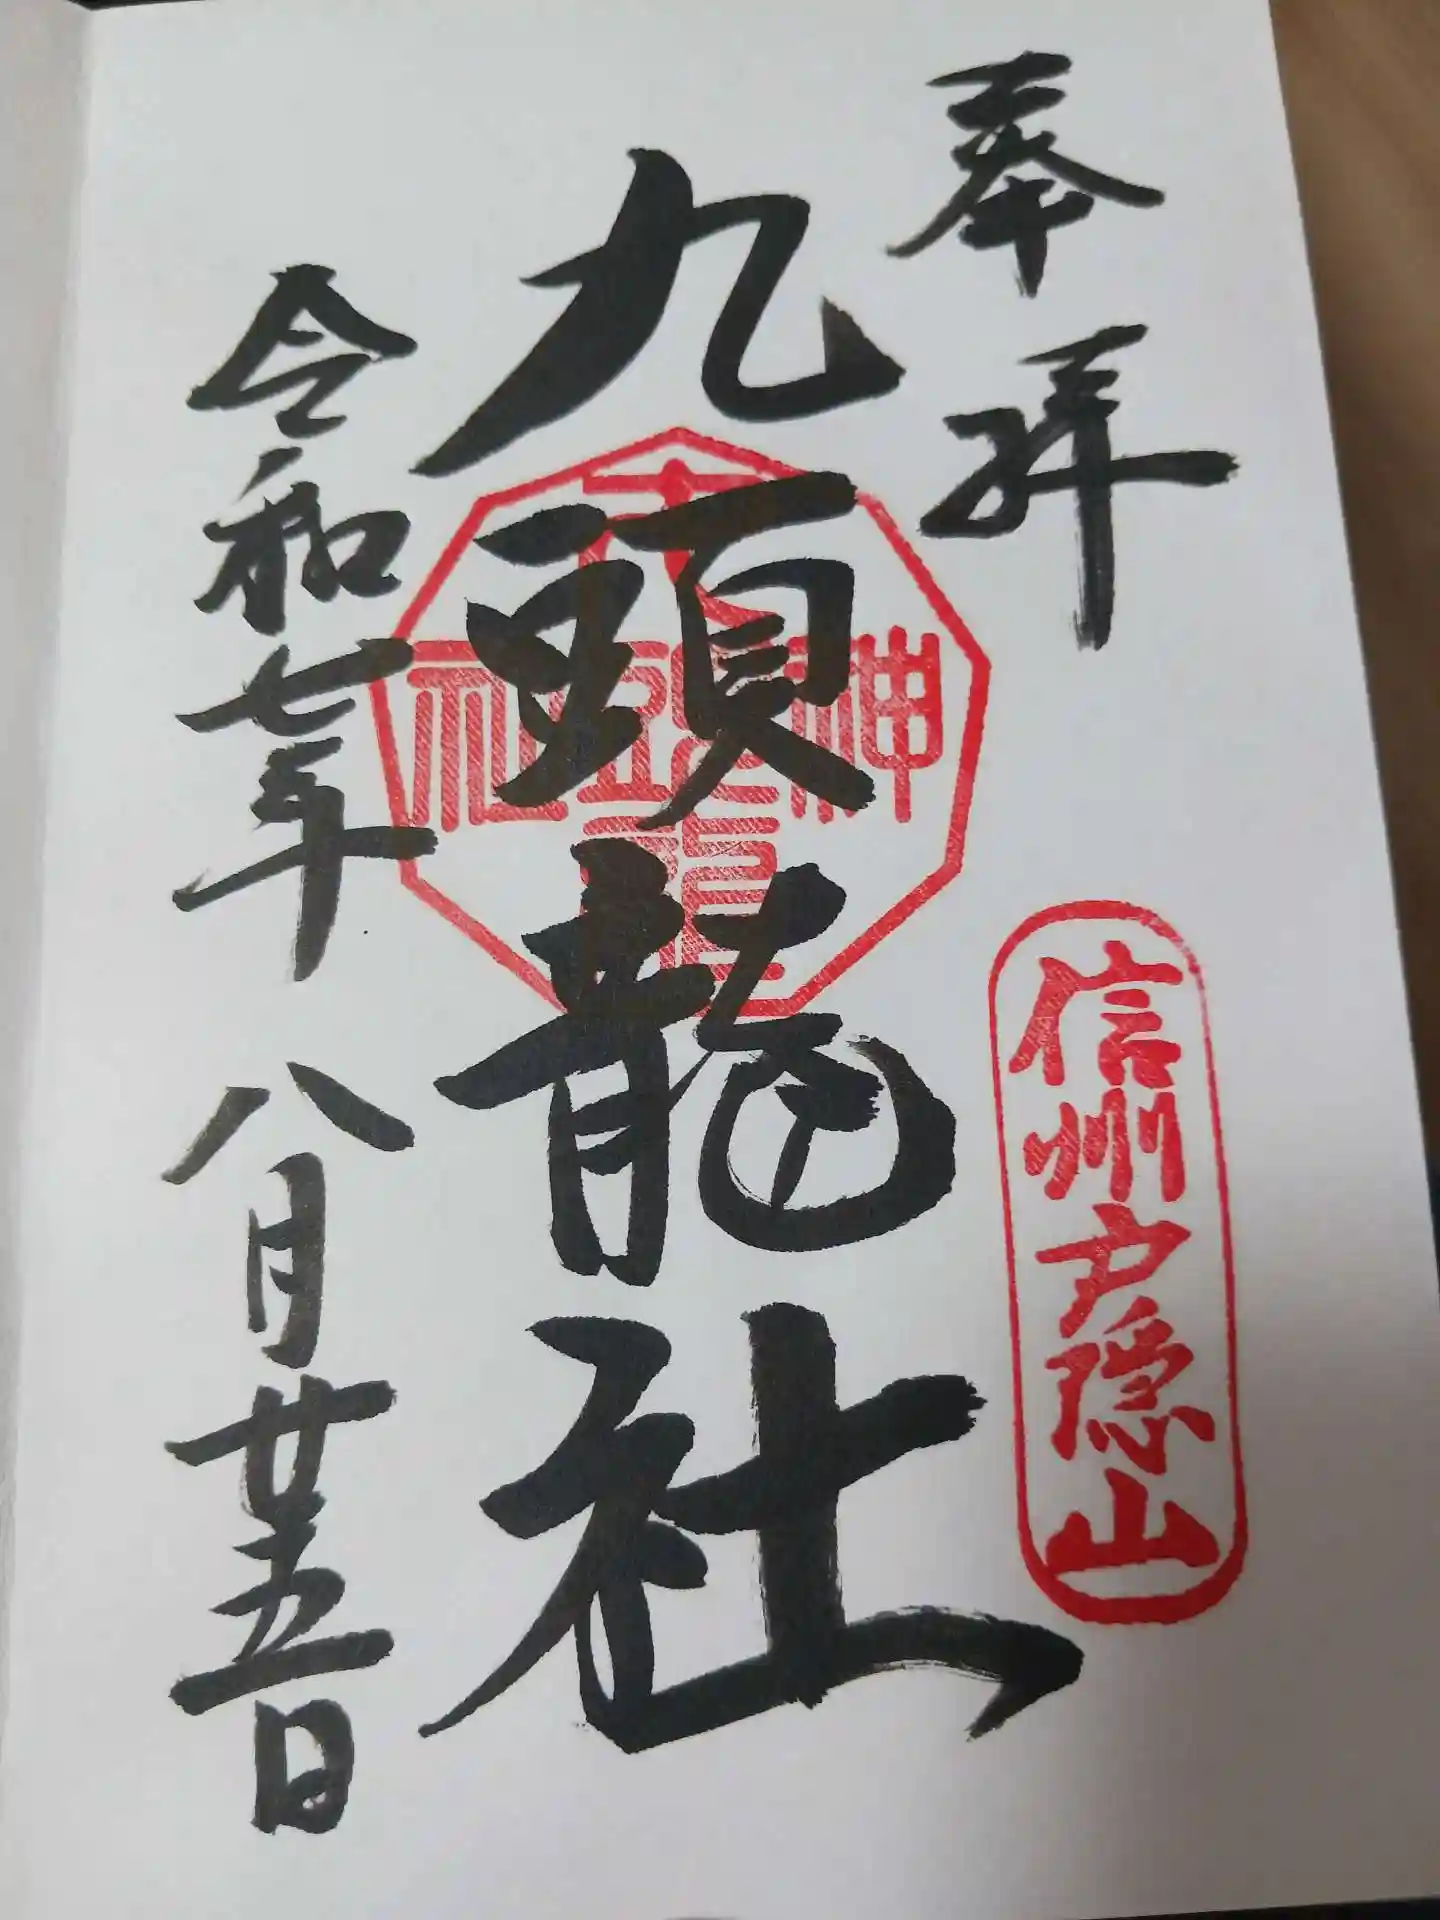 奉拝
信州戸隠山
九頭龍社
神社
令和七年八月廿五日